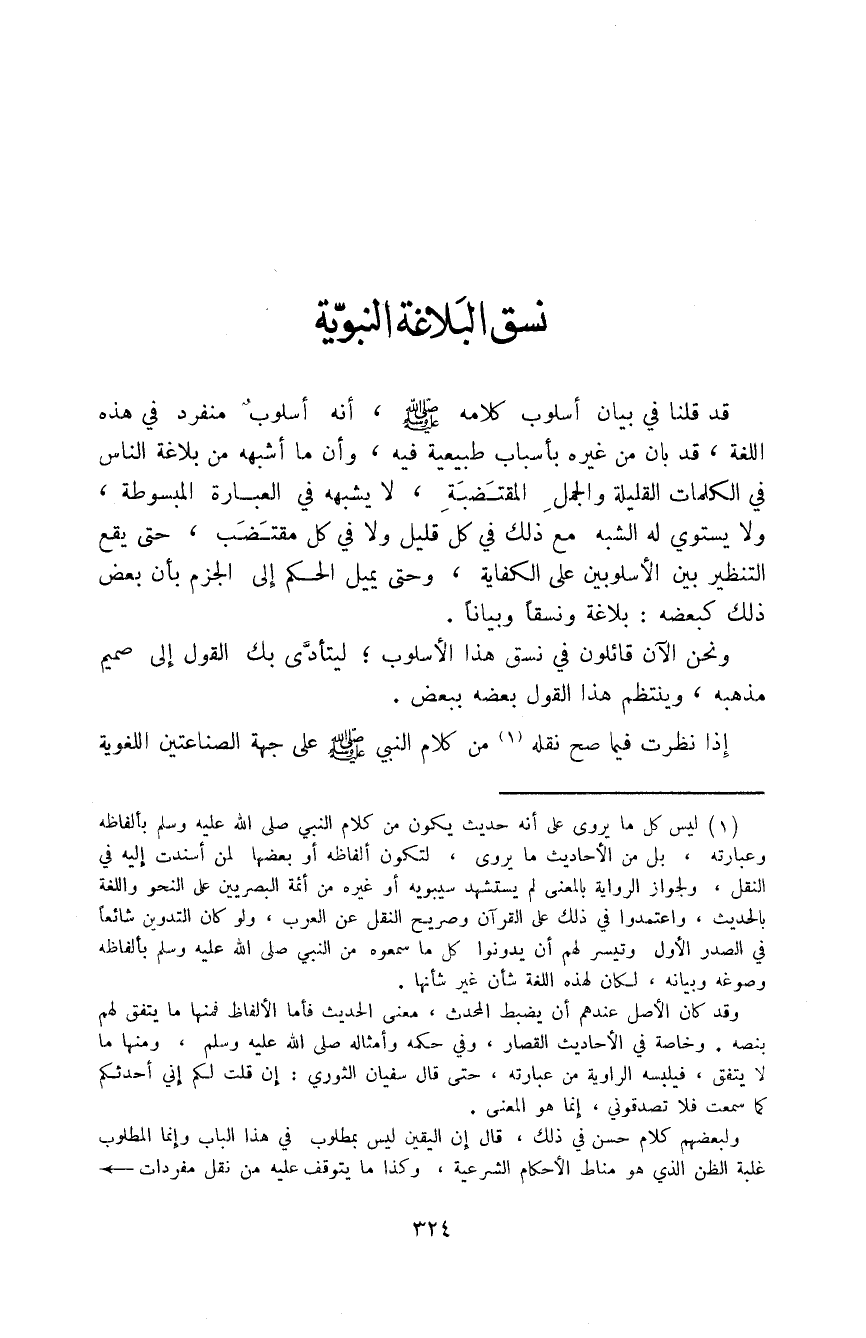 نسق البَلاغة النبويّة
قد قلنا في بيان أسلوب كلامه ﷺ ، أنه أسلوبٌ منفرد في هذه
اللغة ، قد بان من غيره بأسباب طبيعية فيه ، وأن ما أشبهه من بلاغة الناس
في الكلمات القليلة والجملِ المقتـضبَةِ ، لا يشبهه في العبـارة المبسوطة ،
ولا يستوي له الشبه مع ذلك في كل قليل ولا في كل مقتـضَب ، حتى يقع
التنظير بين الأسلوبين على الكفاية ، وحتى يميل الحكم إلى الجزم بأن بعض
ذلك كبعضه : بلاغة ونسقاً وبياناً .
ونحن الآن قائلون في نسق هذا الأسلوب ؛ ليتأدَّى بك القول إلى صميم
مذهبه ، وينتظم هذا القول بعضه ببعض .
إذا نظرت فيما صح نقله (١) من كلام النبي ﷺ على جهة الصناعتين اللغوية
(١) ليس كل ما يروى على أنه حديث يكون من كلام النبي صلى الله عليه وسلم بألفاظه
وعبارته ، بل من الأحاديث ما يروى ، لتكون ألفاظه أو بعضها لمن أسندت إليه في
النقل ، ولجواز الرواية بالمعنى لم يستشهد سيبويه أو غيره من أئمة البصريين على النحو واللغة
بالحديث ، واعتمدوا في ذلك على القرآن وصريح النقل عن العرب ، ولو كان التدوين شائعاً
في الصدر الأول وتيسر لهم أن يدونوا كل ما سمعوه من النبي صلى الله عليه وسلم بألفاظه
وصوغه وبيانه ، لكان لهذه اللغة شأن غير شأنها .
وقد كان الأصل عندهم أن يضبط المحدث ، معنى الحديث فأما الألفاظ فمنها ما يتفق لهم
بنصه . وخاصة في الأحاديث القصار ، وفي حكمه وأمثاله صلى الله عليه وسلم ، ومنها ما
لا يتفق ، فيلبسه الراوية من عبارته ، حتى قال سفيان الثوري : إن قلت لكم إني أحدثكم
كما سمعت فلا تصدقوني ، إنما هو المعنى .
ولبعضهم كلام حسن في ذلك ، قال إن اليقين ليس بمطلوب في هذا الباب وإنما المطلوب
غلبة الظن الذي هو مناط الأحكام الشرعية ، وكذا ما يتوقف عليه من نقل مفردات ←
٣٢٤